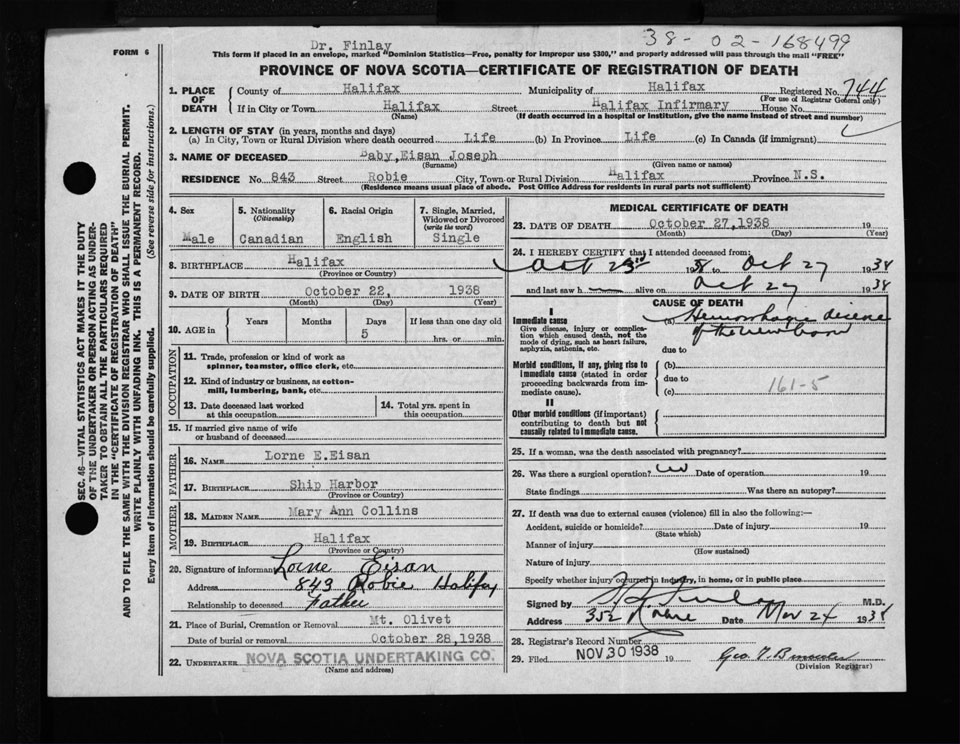 38-02-168499
Dr. Finlay
FORM 6
This form if placed in an envelope, marked "Dominion Statistics—Free, penalty for improper use $300," and properly addressed will pass through the mail "FREE"
PROVINCE OF NOVA SCOTIA—CERTIFICATE OF REGISTRATION OF DEATH
1. PLACE OF DEATH
County of Halifax Municipality of Halifax Registered No. 744
(For use of Registrar General only)
If in City or Town Halifax Street Halifax Infirmary House No.
(Name) (If death occurred in a hospital or institution, give the name instead of street and number)
2. LENGTH OF STAY (in years, months and days)
(a) In City, Town or Rural Division where death occurred Life (b) In Province Life (c) In Canada (if immigrant)
3. NAME OF DECEASED Baby, Eisan Joseph
(Surname) (Given name or names)
RESIDENCE No. 843 Street Robie City, Town or Rural Division Halifax Province N.S.
(Residence means usual place of abode. Post Office Address for residents in rural parts not sufficient)
4. Sex
Male
5. Nationality
(Citizenship)
Canadian
6. Racial Origin
English
7. Single, Married, Widowed or Divorced
(write the word)
Single
8. BIRTHPLACE Halifax
(Province or Country)
9. DATE OF BIRTH October 22, 1938
(Month) (Day) (Year)
10. AGE in
Years Months Days If less than one day old
5 hrs. or min.
OCCUPATION
11. Trade, profession or kind of work as spinner, teamster, office clerk, etc.
12. Kind of industry or business, as cotton-mill, lumbering, bank, etc.
13. Date deceased last worked at this occupation
14. Total yrs. spent in this occupation
15. If married give name of wife or husband of deceased
FATHER
16. NAME Lorne E. Eisan
17. BIRTHPLACE Ship Harbor
(Province or Country)
MOTHER
18. MAIDEN NAME Mary Ann Collins
19. BIRTHPLACE Halifax
(Province or Country)
20. Signature of informant Lorne Eisan
Address 843 Robie Halifax
Relationship to deceased Father
21. Place of Burial, Cremation or Removal Mt. Olivet
Date of burial or removal October 28, 1938
22. UNDERTAKER NOVA SCOTIA UNDERTAKING CO.
(Name and address)
MEDICAL CERTIFICATE OF DEATH
23. DATE OF DEATH October 27, 1938 19
(Month) (Day) (Year)
24. I HEREBY CERTIFY that I attended deceased from:
Oct 23rd 1938 to Oct 27 1938
and last saw h alive on Oct 27 1938
CAUSE OF DEATH
I
Immediate cause
Give disease, injury or complication which caused death, not the mode of dying, such as heart failure, asphyxia, asthenia, etc.
(a) Hemorrhagic disease
of the new born
due to
Morbid conditions, if any, giving rise to immediate cause (stated in order proceeding backwards from immediate cause).
(b)
due to
(c) 161-5
II
Other morbid conditions (if important) contributing to death but not causally related to immediate cause.
25. If a woman, was the death associated with pregnancy?
26. Was there a surgical operation? no Date of operation 19
State findings Was there an autopsy?
27. If death was due to external causes (violence) fill in also the following:—
Accident, suicide or homicide? Date of injury 19
(State which)
Manner of injury
(How sustained)
Nature of injury
Specify whether injury occurred in industry, in home, or in public place
Signed by Finlay M.D.
Address 352 Robie Date Nov 24 1938
28. Registrar's Record Number
29. Filed NOV 30 1938 19
(Division Registrar)
SEC. 46—VITAL STATISTICS ACT MAKES IT THE DUTY
OF THE UNDERTAKER OR PERSON ACTING AS UNDER-
TAKER TO OBTAIN ALL THE PARTICULARS REQUIRED
IN THE "CERTIFICATE OF REGISTRATION OF DEATH"
AND TO FILE THE SAME WITH THE DIVISION REGISTRAR WHO SHALL ISSUE THE BURIAL PERMIT.
WRITE PLAINLY WITH UNFADING INK. THIS IS A PERMANENT RECORD.
Every item of information should be carefully supplied. (See reverse side for instructions.)